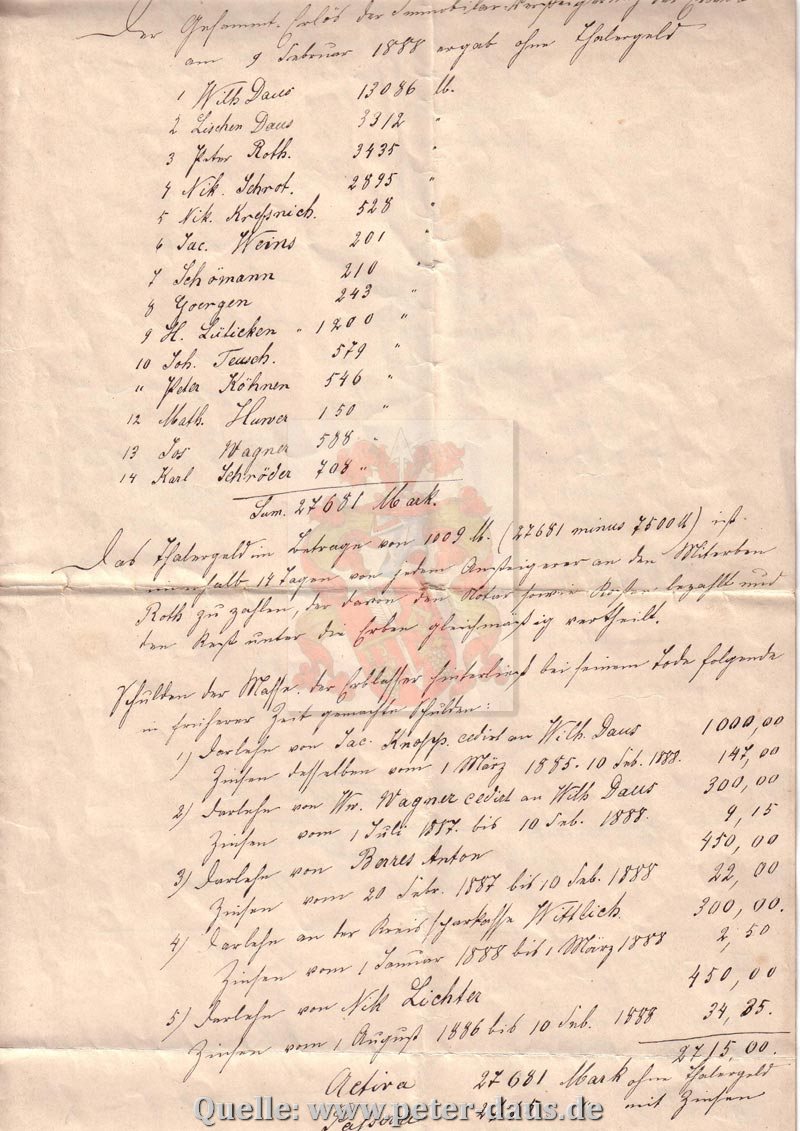 Der Gesammt-Erlös der Immobilar-Versteigerung
am 9 Februar 1888 ergab ohne Thalergeld
1 Wilh Daus 13086 M.
2 Lischen Daus 3312 "
3 Peter Roth. 3435 "
4 Nik. Schrot. 2895 "
5 Nik. Kreßnich. 528 "
6 Jac. Weins 201 "
7 Schömann 210 "
8 Goergen 243 "
9 H. Lüticken " 1200 "
10 Joh. Teusch. 579 "
" Peter Köhnen 546 "
12 Math. Huwer 150 "
13 Jos Wagner 588 "
14 Karl Schröder 708 "
Sum. 27681 Mark.
Das Thalergeld im Betrage von 1009 M. (27681 minus 7500 M) ist
innerhalb 14 Tagen von jedem Ansteigerer an den Miterben
Roth zu zahlen, der davon den Notar sowie Kosten bezahlt und
den Rest unter die Erben gleichmäßig vertheilt.
Schulden der Masse. der Erblasser hinterließ bei seinem Tode folgende
in früherer Zeit gemachte Schulden:
1) Darlehn von Jac. Knopp. cedirt an Wilh. Daus 1000,00
Zinsen desselben vom 1 März 1885. 10 Feb. 1888. 147,00
2) Darlehn von Ww. Wagner cedirt an Wilh Daus 300,00
Zinsen vom 1 Juli 1887. bis 10 Feb. 1888. 9,15
3) Darlehn von Borres Anton 450,00
Zinsen vom 20 Febr. 1887 bis 10 Feb. 1888 22,00
4) Darlehn an der Kreissparkasse Wittlich 300,00.
Zinsen vom 1 Januar 1888 bis 1 März 1888 2,50
5) Darlehn von Nik Lichter 450,00
Zinsen vom 1 August 1886 bis 10 Feb. 1888 34,35.
2715,00.
Activa 27681 Mark ohne Thalergeld
Passiva mit Zinsen
Quelle: www.peter-daus.de